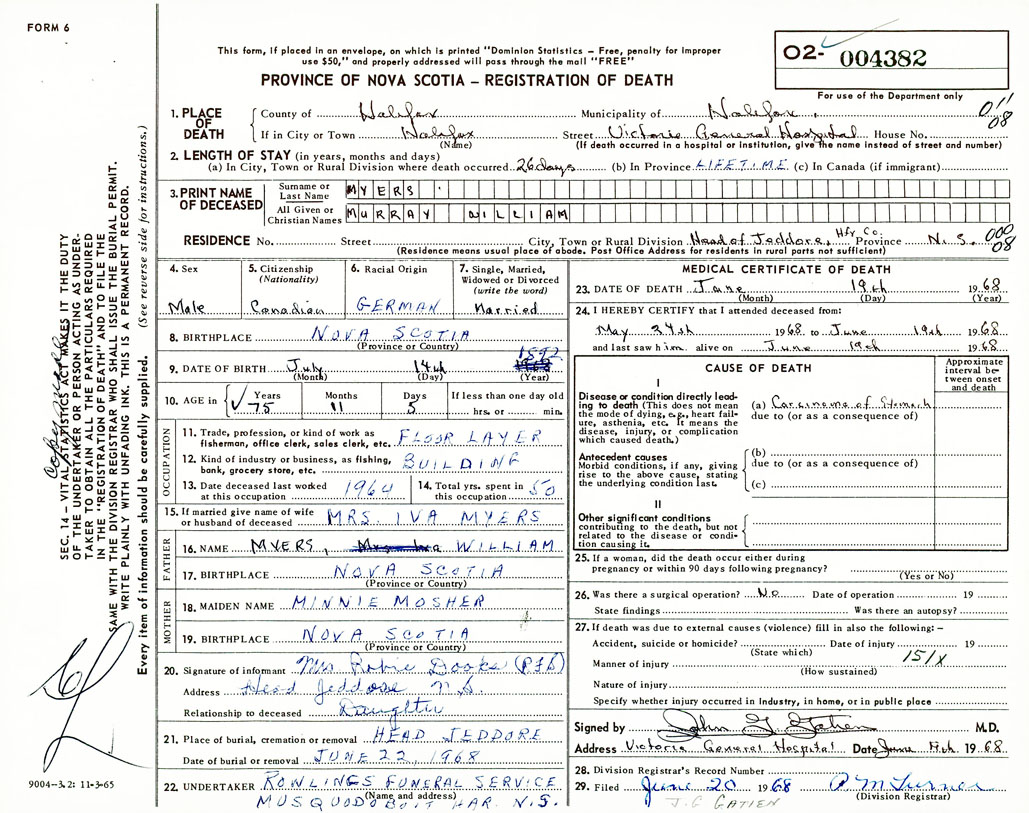 FORM 6
This form, if placed in an envelope, on which is printed "Dominion Statistics - Free, penalty for improper
use $50," and properly addressed will pass through the mail "FREE"
PROVINCE OF NOVA SCOTIA - REGISTRATION OF DEATH
02- 004382
For use of the Department only
1. PLACE OF DEATH
County of Halifax Municipality of Halifax
011
08
If in City or Town Halifax Street Victoria General Hospital House No.
(Name) (If death occurred in a hospital or institution, give the name instead of street and number)
2. LENGTH OF STAY (in years, months and days)
(a) In City, Town or Rural Division where death occurred 26 days (b) In Province LIFETIME (c) In Canada (if immigrant)
3. PRINT NAME OF DECEASED
Surname or Last Name MYERS
All Given or Christian Names MURRAY WILLIAM
RESIDENCE No. Street City, Town or Rural Division Head of Jeddore, Hfx Co. Province N.S. 000
08
(Residence means usual place of abode. Post Office Address for residents in rural parts not sufficient)
4. Sex
Male
5. Citizenship
(Nationality)
Canadian
6. Racial Origin
GERMAN
7. Single, Married,
Widowed or Divorced
(write the word)
Married
8. BIRTHPLACE NOVA SCOTIA
(Province or Country)
9. DATE OF BIRTH July 14th 1892
(Month) (Day) (Year)
10. AGE in Years Months Days If less than one day old
75 11 5 hrs. or min.
OCCUPATION
11. Trade, profession, or kind of work as
fisherman, office clerk, sales clerk, etc. FLOOR LAYER
12. Kind of industry or business, as fishing,
bank, grocery store, etc. BUILDING
13. Date deceased last worked
at this occupation 1964
14. Total yrs. spent in
this occupation 50
15. If married give name of wife
or husband of deceased MRS. IVA MYERS
FATHER
16. NAME MYERS, WILLIAM
17. BIRTHPLACE NOVA SCOTIA
(Province or Country)
MOTHER
18. MAIDEN NAME MINNIE MOSHER
19. BIRTHPLACE NOVA SCOTIA
(Province or Country)
20. Signature of informant Mrs Robie Dooks
Address Head Jeddore N.S.
Relationship to deceased Daughter
21. Place of burial, cremation or removal HEAD JEDDORE
Date of burial or removal JUNE 22, 1968
22. UNDERTAKER ROWLINGS FUNERAL SERVICE
(Name and address)
MUSQUODOBOIT HAR. N.S.
MEDICAL CERTIFICATE OF DEATH
23. DATE OF DEATH June 19th 1968
(Month) (Day) (Year)
24. I HEREBY CERTIFY that I attended deceased from:
May 24th 1968 to June 19th 1968
and last saw him alive on June 19th 1968
CAUSE OF DEATH
Approximate
interval be-
tween onset
and death
I
Disease or condition directly lead-
ing to death (This does not mean
the mode of dying, e.g., heart fail-
ure, asthenia, etc. It means the
disease, injury, or complication
which caused death.)
(a) Carcinoma of Stomach
due to (or as a consequence of)
Antecedent causes
Morbid conditions, if any, giving
rise to the above cause, stating
the underlying condition last.
(b)
due to (or as a consequence of)
(c)
II
Other significant conditions
contributing to the death, but not
related to the disease or condi-
tion causing it.
25. If a woman, did the death occur either during
pregnancy or within 90 days following pregnancy?
(Yes or No)
26. Was there a surgical operation? No Date of operation 19
State findings Was there an autopsy?
27. If death was due to external causes (violence) fill in also the following: -
Accident, suicide or homicide? Date of injury 19
(State which)
Manner of injury 151X
(How sustained)
Nature of injury
Specify whether injury occurred in Industry, in home, or in public place
Signed by M.D.
Address Victoria General Hospital Date June 1968
28. Division Registrar's Record Number
29. Filed June 20 1968
(Division Registrar)
J.G. GATIEN
SEC. 14 - VITAL STATISTICS ACT MAKES IT THE DUTY
OF THE UNDERTAKER OR PERSON ACTING AS UNDER-
TAKER TO OBTAIN ALL THE PARTICULARS REQUIRED
IN THE "REGISTRATION OF DEATH" AND TO FILE THE
SAME WITH THE DIVISION REGISTRAR WHO SHALL ISSUE THE BURIAL PERMIT.
WRITE PLAINLY WITH UNFADING INK. THIS IS A PERMANENT RECORD.
Every item of information should be carefully supplied. (See reverse side for instructions.)
9004-3.2: 11-3-65